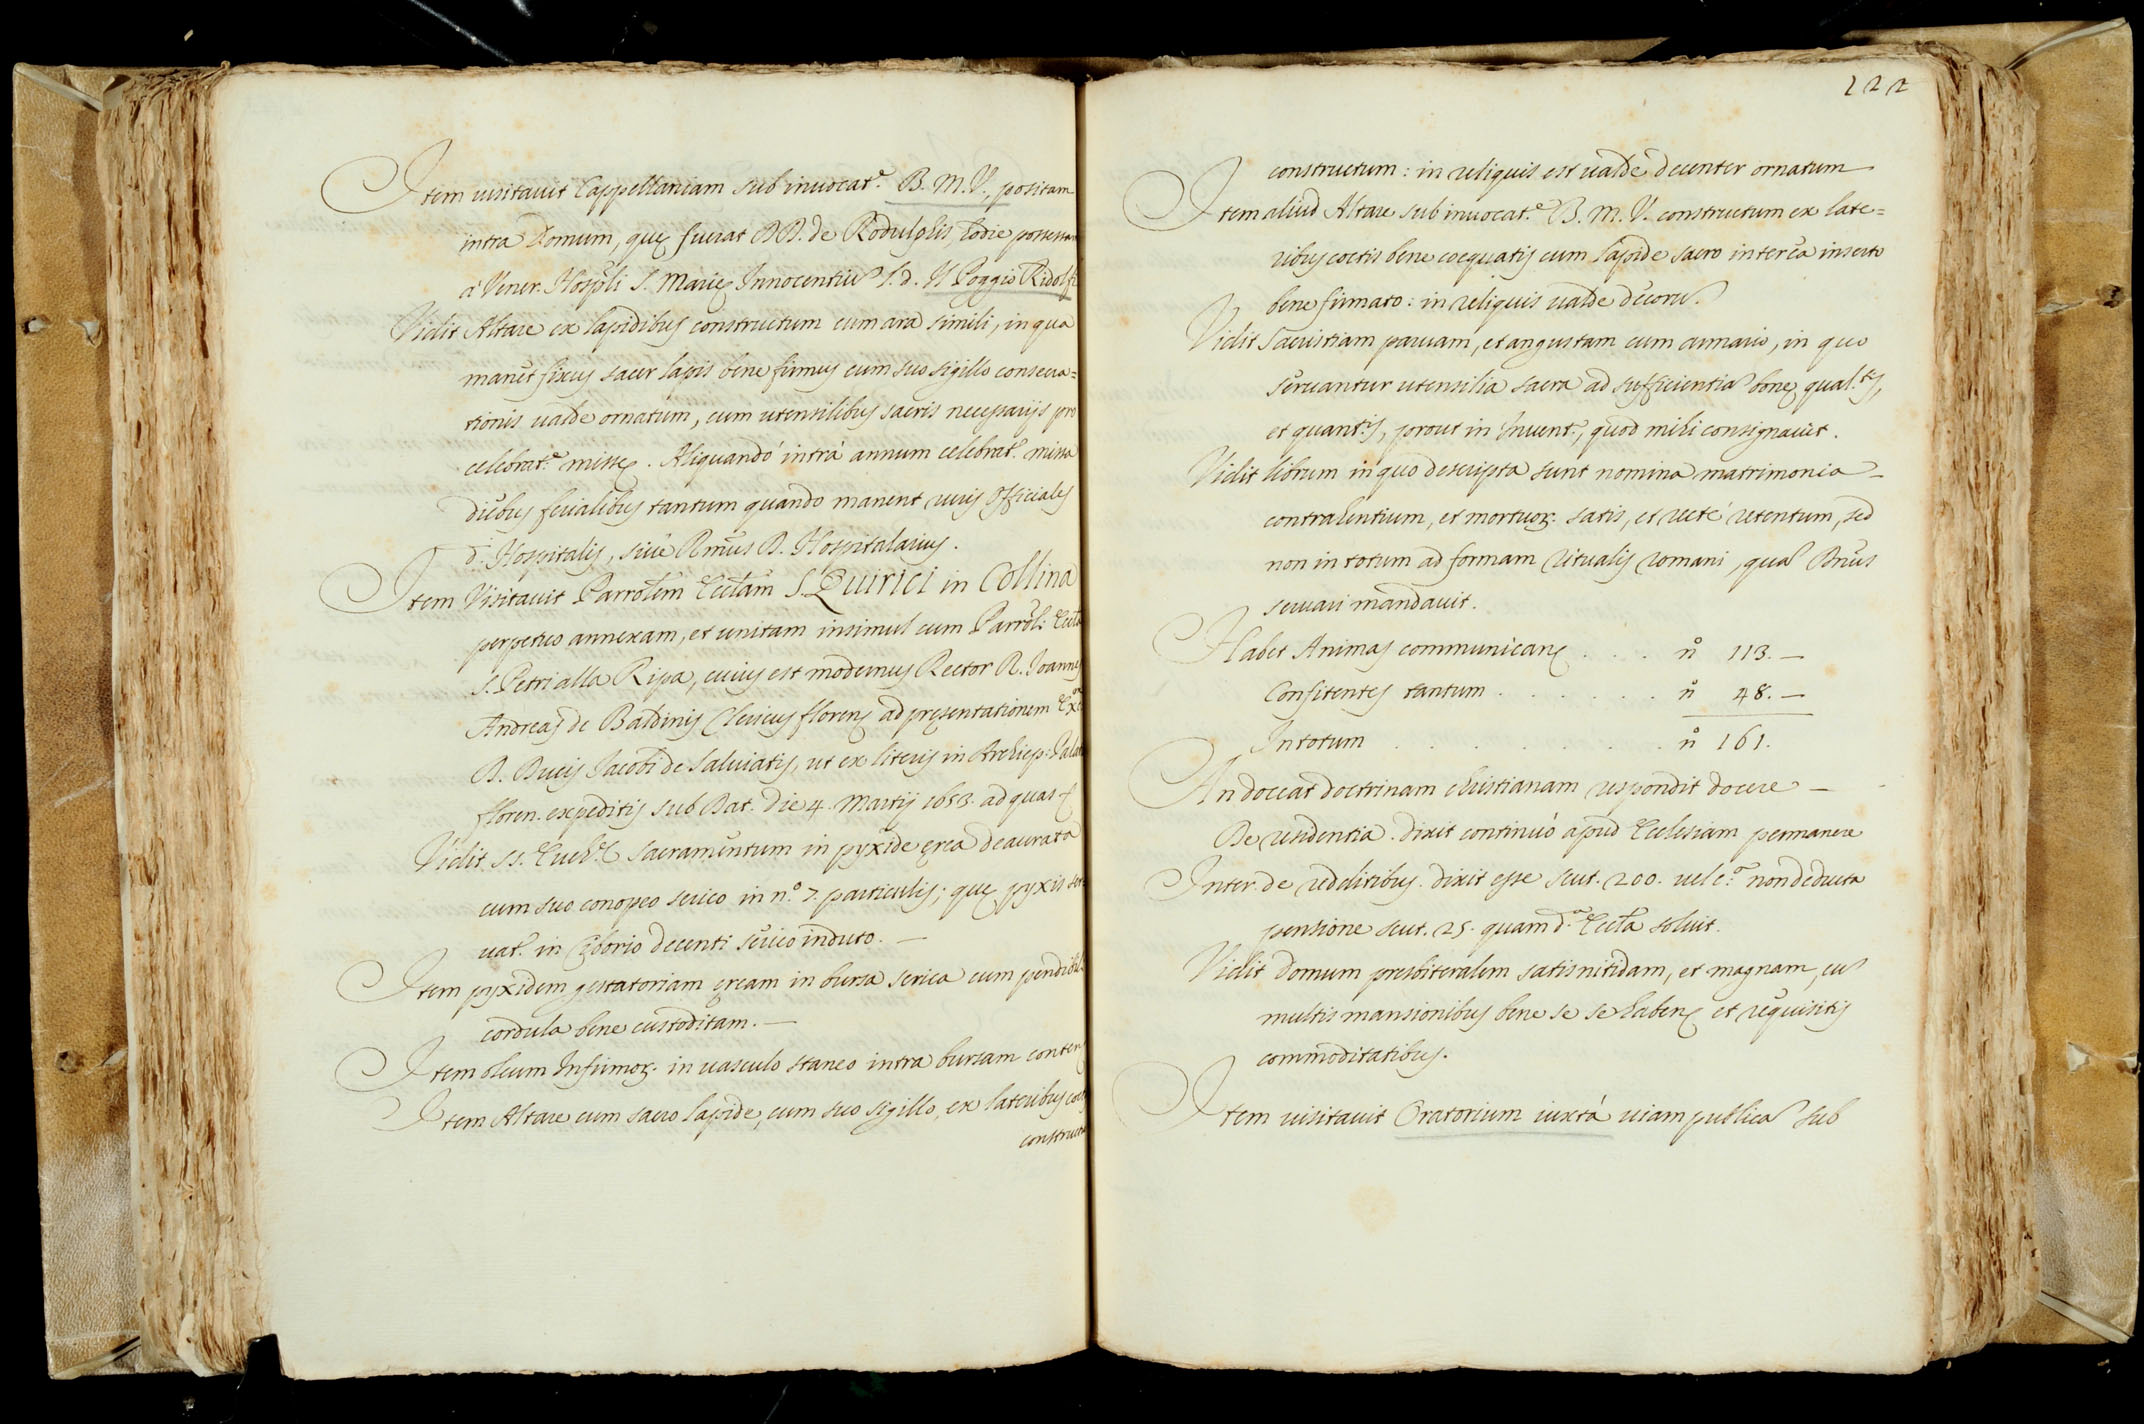 Item visitavit Cappellaniam sub invocat.e B. M. V., positam
intra Domum, quę fuerat DD. de Rodulphis, hodie possessam
à Vener. Hospli S. Marię Innocentiu s. d. Il Poggio Ridolfi
Vidit Altare ex lapidibus constructum cum ara simili, in qua
manet fixus sacer lapis bene firmus cum suo sigillo consecra=
tionis valde ornatum, cum utensilibus sacris necessarijs pro
celebrat.e missę. Aliquandó intrà annum celebrat.r missa
diebus ferialibus tantum quando manent ruris Officiales
d. Hospitalis, sive Rmus D. Hospitalarius.
Item Visitavit Parrolem Ecclam S. Quirici in Collina
perpetuo annexam, et unitam insimul cum Parrol: Eccla
S. Petri alla Ripa, cuius est modernus Rector R. Joannes
Andreas de Baldinis Clericus floren. ad pręsentationem
D. Ducis Jacobi de Salviatis, ut ex literis in Archiep:
floren. expeditis sub Dat. die 4. Martij 1653. ad quas
Vidit SS. Euch.e Sacramentum in pyxide ęrea deaurata
cum suo conopeo serico in n.o 7. particulis; quę pyxis ser=
vat.r in Ciborio decenti serico induto. —
Item pyxidem gestatoriam ęream in bursa serica cum pendibili
cordula bene custoditam. —
Item oleum Infirmor. in vasculo staneo intra bursam conten.
Item Altare cum sacro lapide, cum suo sigillo, ex lateribus coctis
constructu
122
constructum: in reliquis est valdè decenter ornatum
Item aliud Altare sub invocat.e B. M. V. constructum ex late=
ribus coctis bene coequatis cum lapide sacro interea inserto
bene firmato: in reliquis valde decoru.
Vidit Sacristiam parvam, et angustam cum armario, in quo
servantur utensilia sacra ad sufficientia bonę qual.tis,
et quant.tis, prout in Invent.o, quod mihi consignavit.
Vidit librum in quo descripta sunt nomina matrimonia
contrahentium, et mortuor. satis, et rectè retentum, sed
non in totum ad formam Ritualis romani, qua Dnus
servari mandavit.
Habet Animas communican. . . . n.o 113. —
Confitentes tantum . . . . . . n.o 48. —
In totum . . . . . . . . n.o 161.
An doceat doctrinam christianam respondit docere —
De residentia. dixit continuò apud Ecclesiam permanere
Inter. de redditibus. dixit esse scut. 200. vel c.a non deducta
pensione scut. 25. quam d.a Eccla solvit.
Vidit domum presbiteralem satis nitidam, et magnam, cu
multis mansionibus bene se se haben. et requisitis
commoditatibus.
Item visitavit Oratorium iuxtà viam publica sub